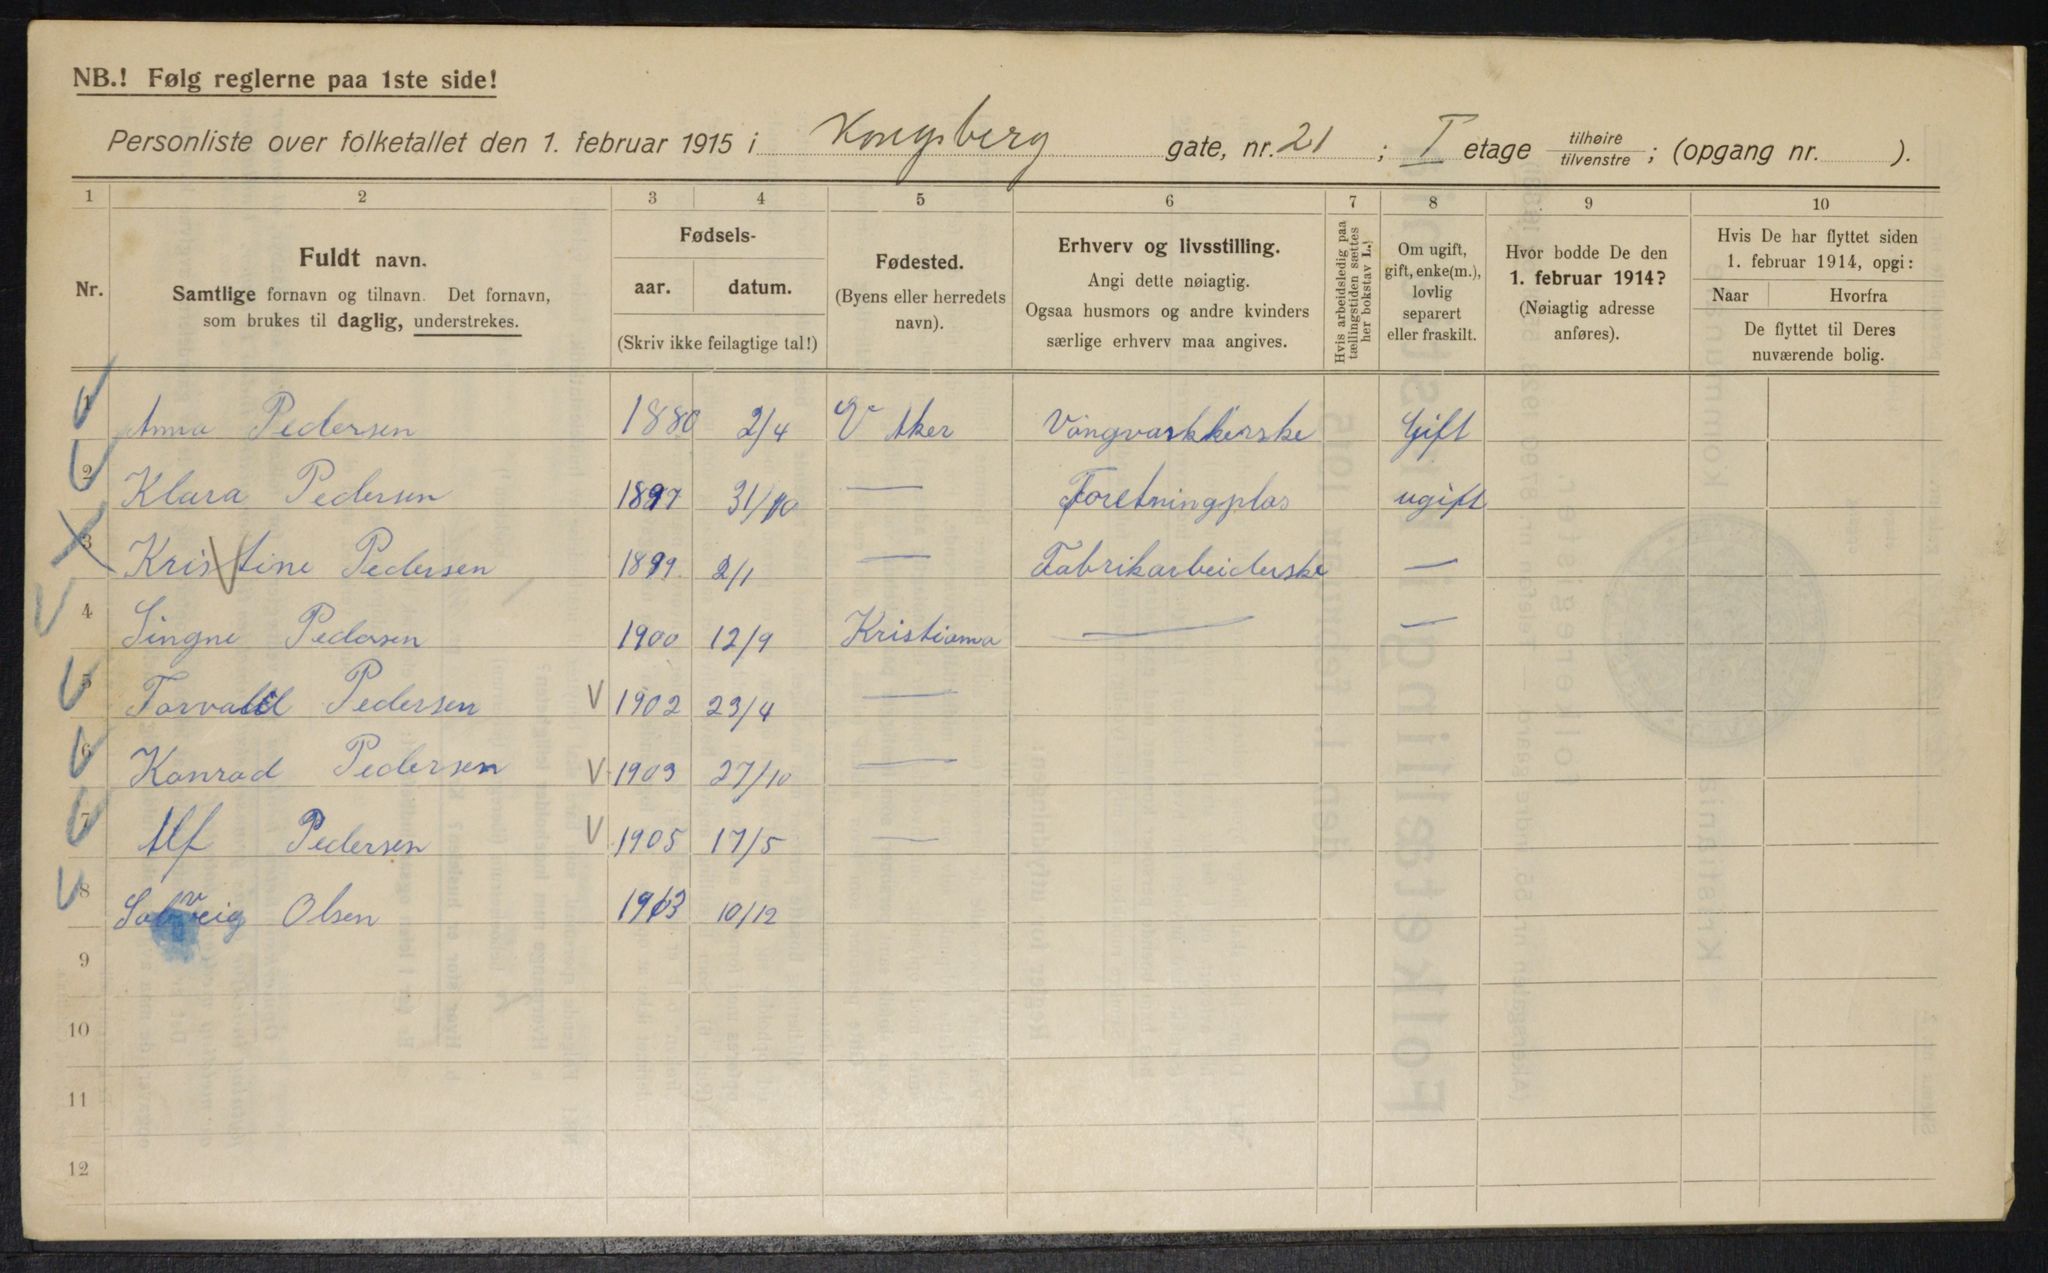 NB.! Følg reglerne paa 1ste side!
Personliste over folketallet den 1. februar 1915 i Kongsberg gate, nr. 21 ; I etage tilhøire / tilvenstre ; (opgang nr. ).
1 2 3 4 5 6 7 8 9 10
Nr.
Fuldt navn.
Samtlige fornavn og tilnavn. Det fornavn,
som brukes til daglig, understrekes.
Fødsels-
aar. datum.
(Skriv ikke feilagtige tal!)
Fødested.
(Byens eller herredets
navn).
Erhverv og livsstilling.
Angi dette nøiagtig.
Ogsaa husmors og andre kvinders
særlige erhverv maa angives.
Hvis arbeidsledig paa
tællingstiden sættes
her bokstav L.)
Om ugift,
gift, enke(m.),
lovlig
separert
eller fraskilt.
Hvor bodde De den
1. februar 1914?
(Nøiagtig adresse
anføres).
Hvis De har flyttet siden
1. februar 1914, opgi:
Naar Hvorfra
De flyttet til Deres
nuværende bolig.
1 Anna Pedersen 1880 2/4 V Aker Vangvaskkerske Gift
2 Klara Pedersen 1897 31/10 — Foretningplas ugift
3 Kristine Pedersen 1899 2/1 — Fabrikarbeiderske —
4 Singne Pedersen 1900 12/9 Kristiania — —
5 Torvald Pedersen V 1902 23/4 —
6 Konrad Pedersen V 1903 27/10 —
7 Alf Pedersen V 1905 17/5 —
8 Solveig Olsen 1913 10/12
9
10
11
12